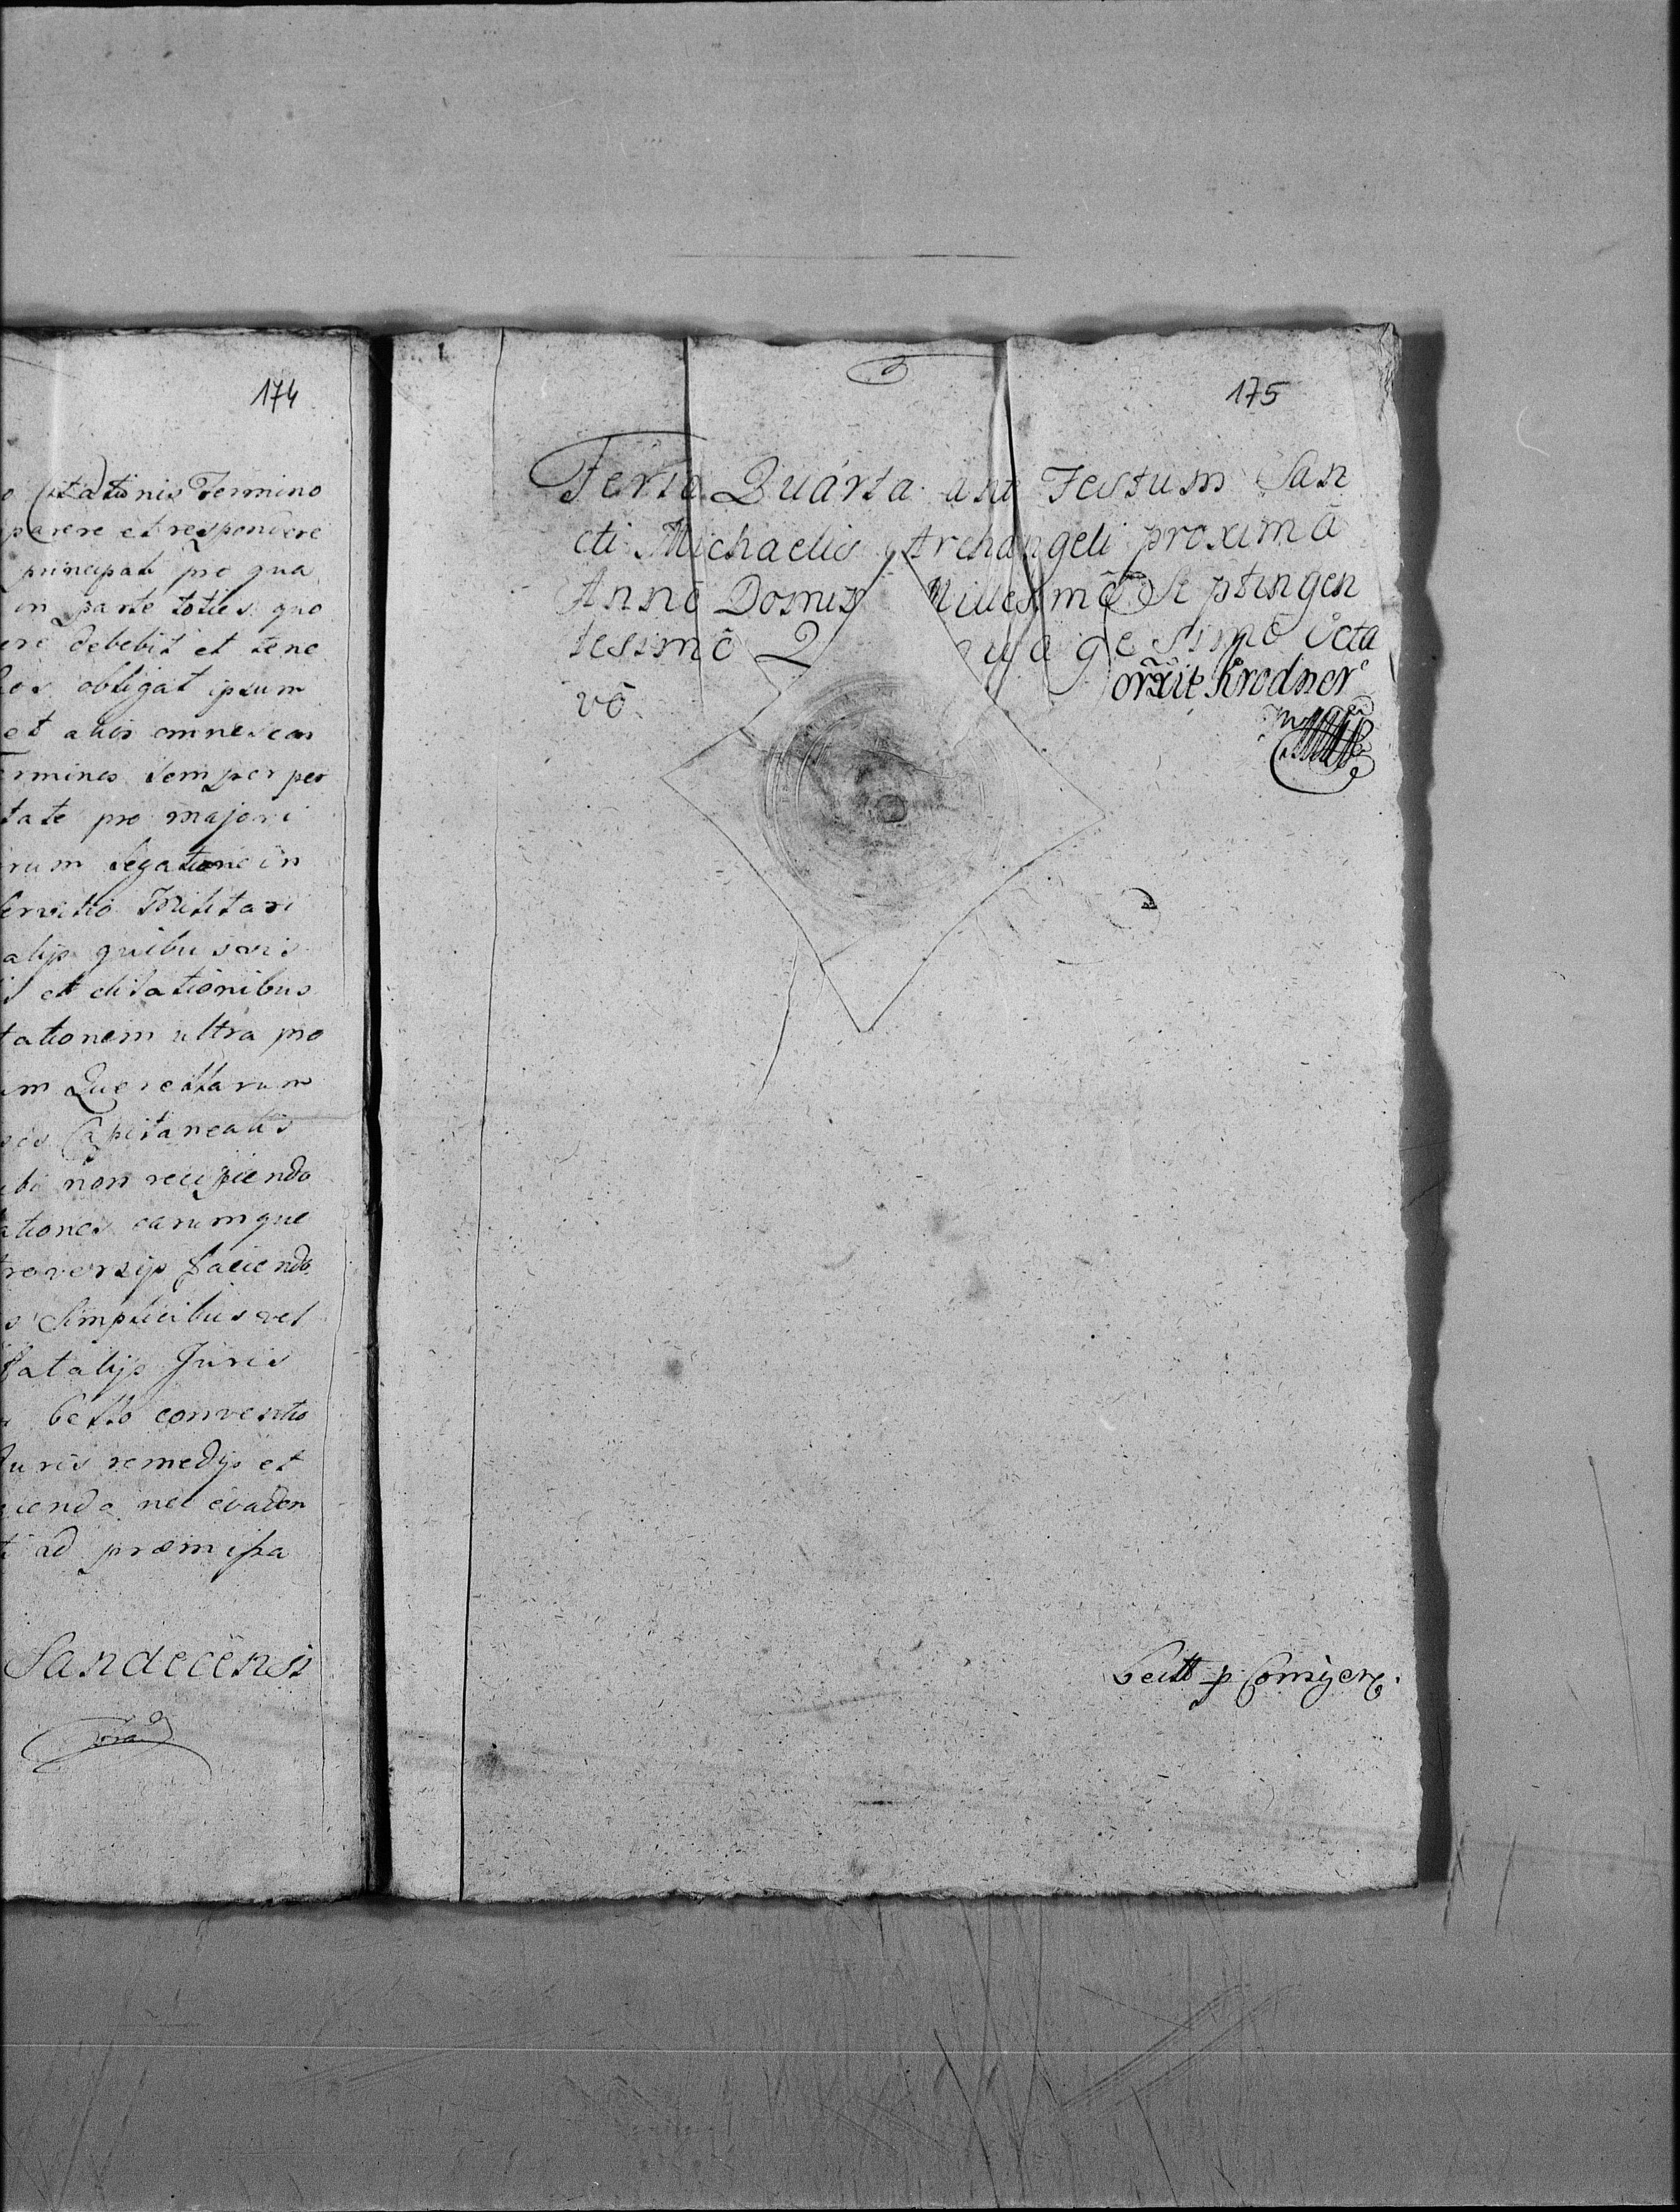 174
Citationis Termino
parere et respondere
principali pro qua
in parte toties quo
debebit et tene
obligat ipsum
et alios omnes eos
Terminos semper per
tate pro majori
rum legatione in
Servitio Militari
alijs quibusvis
et dilationibus
tationem ultra pro
Querellarum
Capitanealis
non recipiendo
ationes earumque
troversijs faciendo
Simplicibus vel
fatalijs Juris
bello conventio
Juris remedijs et
iendo nec evaden
ad præmissa
Sandecensi
175
Feria Quarta ante Festum San
cti Michaelis Archangeli proximâ
Annô Domini Millesimô Septingen
tesimô Q uagesimô Octa
vô.
Krodner